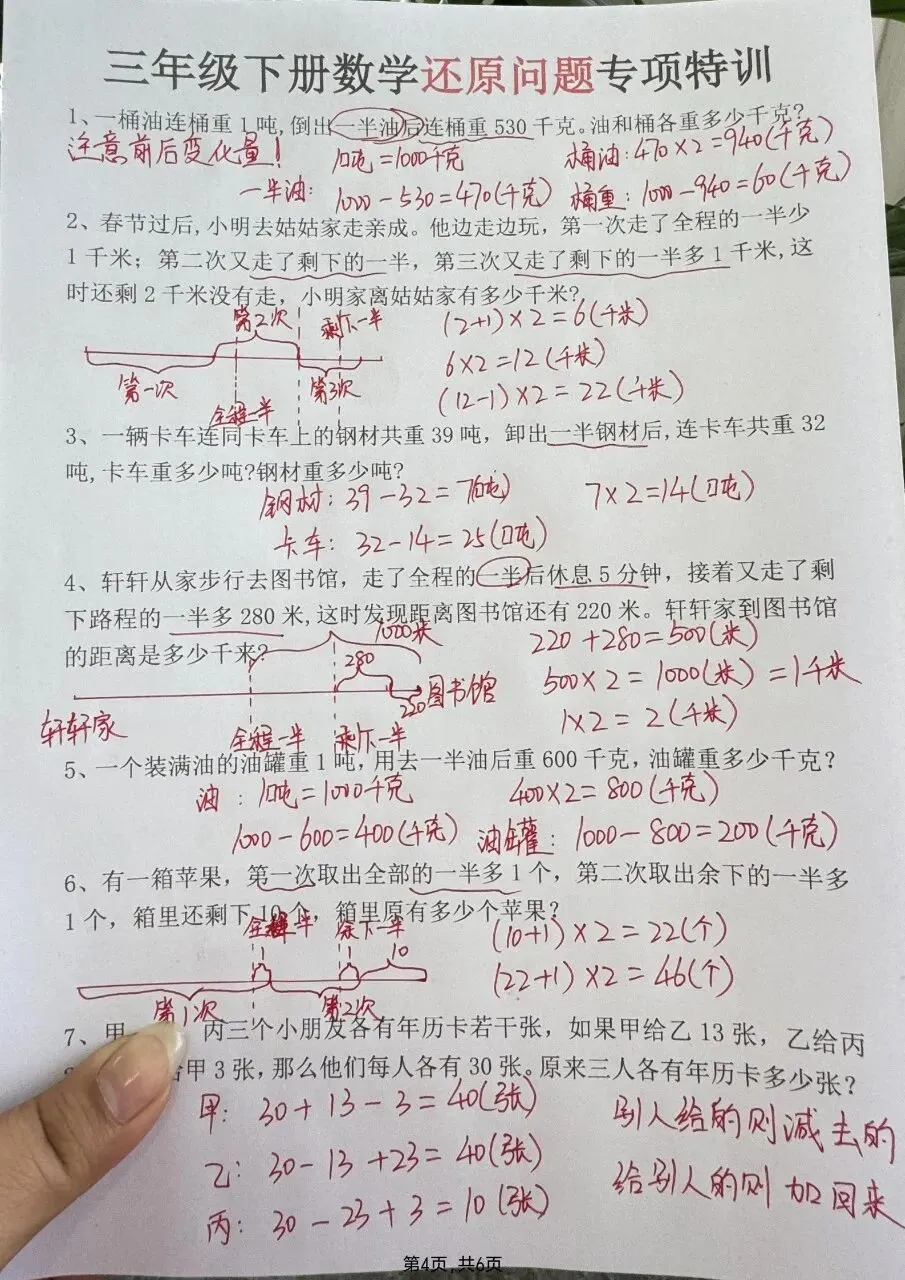 三年级下册数学还原问题专项特训
1、一桶油连桶重1吨,倒出一半油后连桶重530千克。油和桶各重多少千克?
注意前后变化量!
1吨=1000千克
桶油:470×2=940(千克)
一半油:
1000-530=470(千克)
桶重:1000-940=60(千克)
2、春节过后,小明去姑姑家走亲成。他边走边玩,第一次走了全程的一半少
1千米;第二次又走了剩下的一半,第三次又走了剩下的一半多1千米,这
时还剩2千米没有走,小明家离姑姑家有多少千米?
第2次
剩下一半
(2+1)×2=6(千米)
6×2=12(千米)
第一次
第3次
(12-1)×2=22(千米)
全程一半
3、一辆卡车连同卡车上的钢材共重39吨,卸出一半钢材后,连卡车共重32
吨,卡车重多少吨?钢材重多少吨?
钢材:39-32=7(吨)
7×2=14(吨)
卡车:32-14=25(吨)
4、轩轩从家步行去图书馆,走了全程的一半后休息5分钟,接着又走了剩
下路程的一半多280米,这时发现距离图书馆还有220米。轩轩家到图书馆
的距离是多少千来?
1000米
220+280=500(米)
280
500×2=1000(米)=1千米
220
图书馆
轩轩家
1×2=2(千米)
全程一半
剩下一半
5、一个装满油的油罐重1吨,用去一半油后重600千克,油罐重多少千克?
油:1吨=1000千克
400×2=800(千克)
1000-600=400(千克)
油罐:1000-800=200(千克)
6、有一箱苹果,第一次取出全部的一半多1个,第二次取出余下的一半多
1个,箱里还剩下10个,箱里原有多少个苹果?
全部一半
余下一半
1
1
10
(10+1)×2=22(个)
(22+1)×2=46(个)
第1次
第2次
7、甲 丙三个小朋友各有年历卡若干张,如果甲给乙13张,乙给丙
给甲3张,那么他们每人各有30张。原来三人各有年历卡多少张?
甲:30+13-3=40(张)
别人给的则减去的
乙:30-13+23=40(张)
给别人的则加回来
丙:30-23+3=10(张)
第4页,共6页